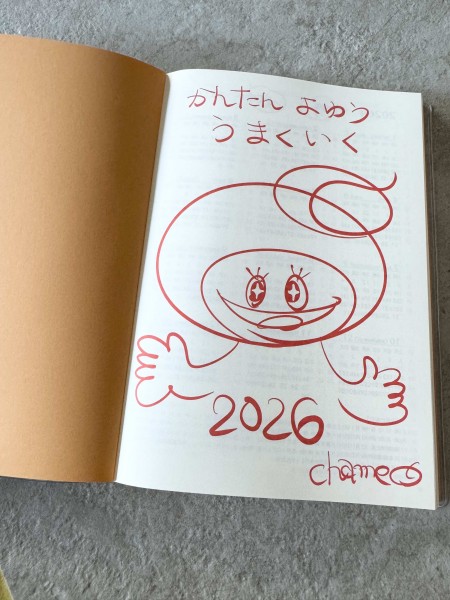 かんたん よゆう
うまくいく
2026
chameco